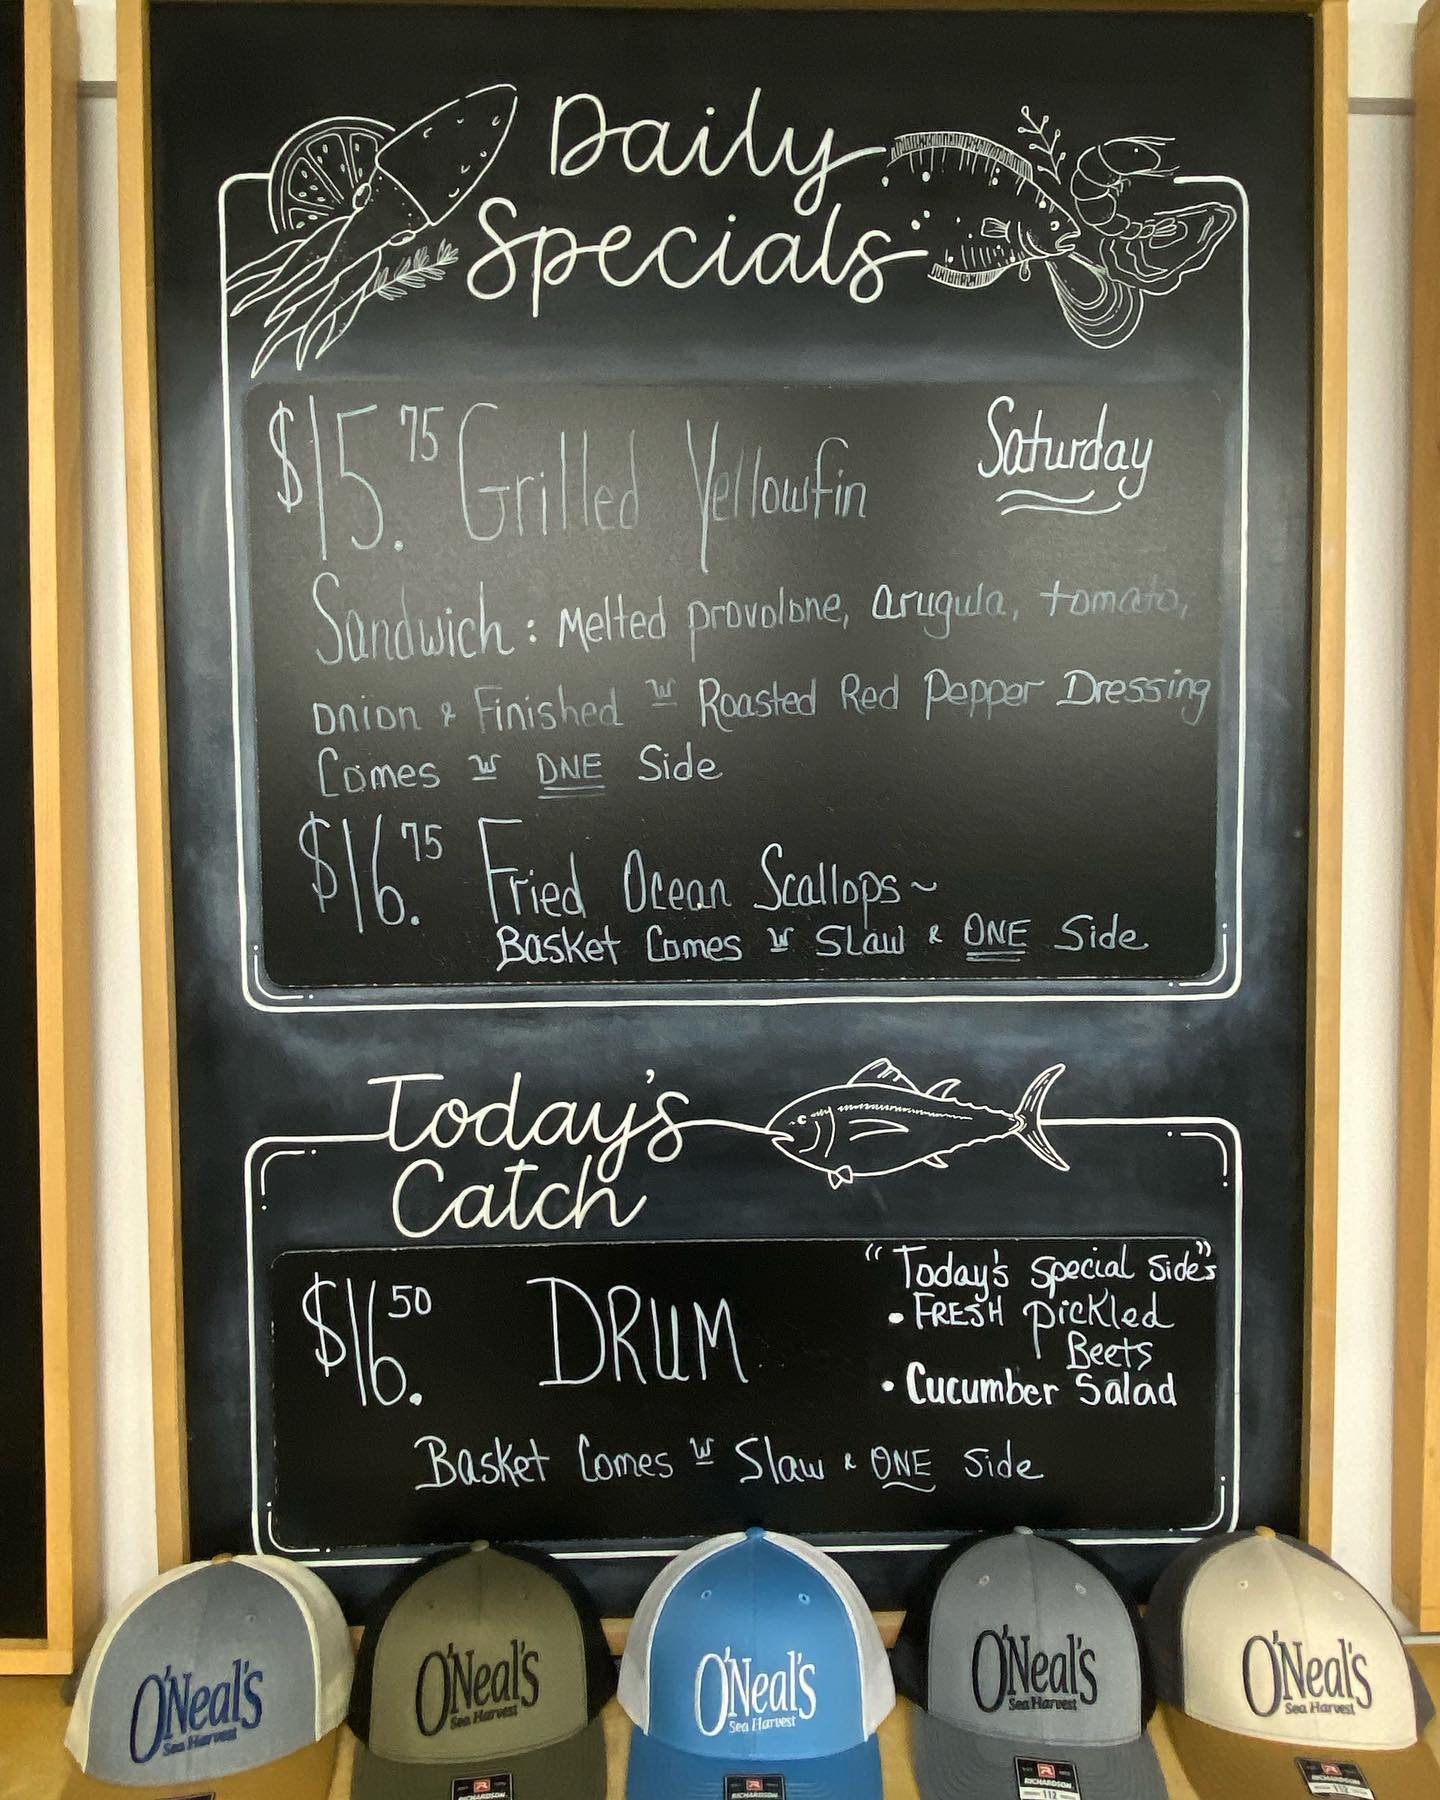 Daily
Specials
Saturday
$15.75 Grilled Yellowfin
Sandwich: Melted provolone, arugula, tomato,
onion & Finished w Roasted Red Pepper Dressing
Comes w ONE Side
$16.75 Fried Ocean Scallops ~
Basket Comes w Slaw & ONE Side
Today's
Catch
$16.50 DRUM
"Today's special sides"
• FRESH pickled
Beets
• Cucumber Salad
Basket Comes w Slaw & ONE Side
O'Neal's
Sea Harvest
O'Neal's
Sea Harvest
O'Neal's
Sea Harvest
O'Neal's
Sea Harvest
O'Neal's
Sea Harvest
R
RICHARDSON
R
RICHARDSON
R
RICHARDSON
112
R
RICHARDSON
112